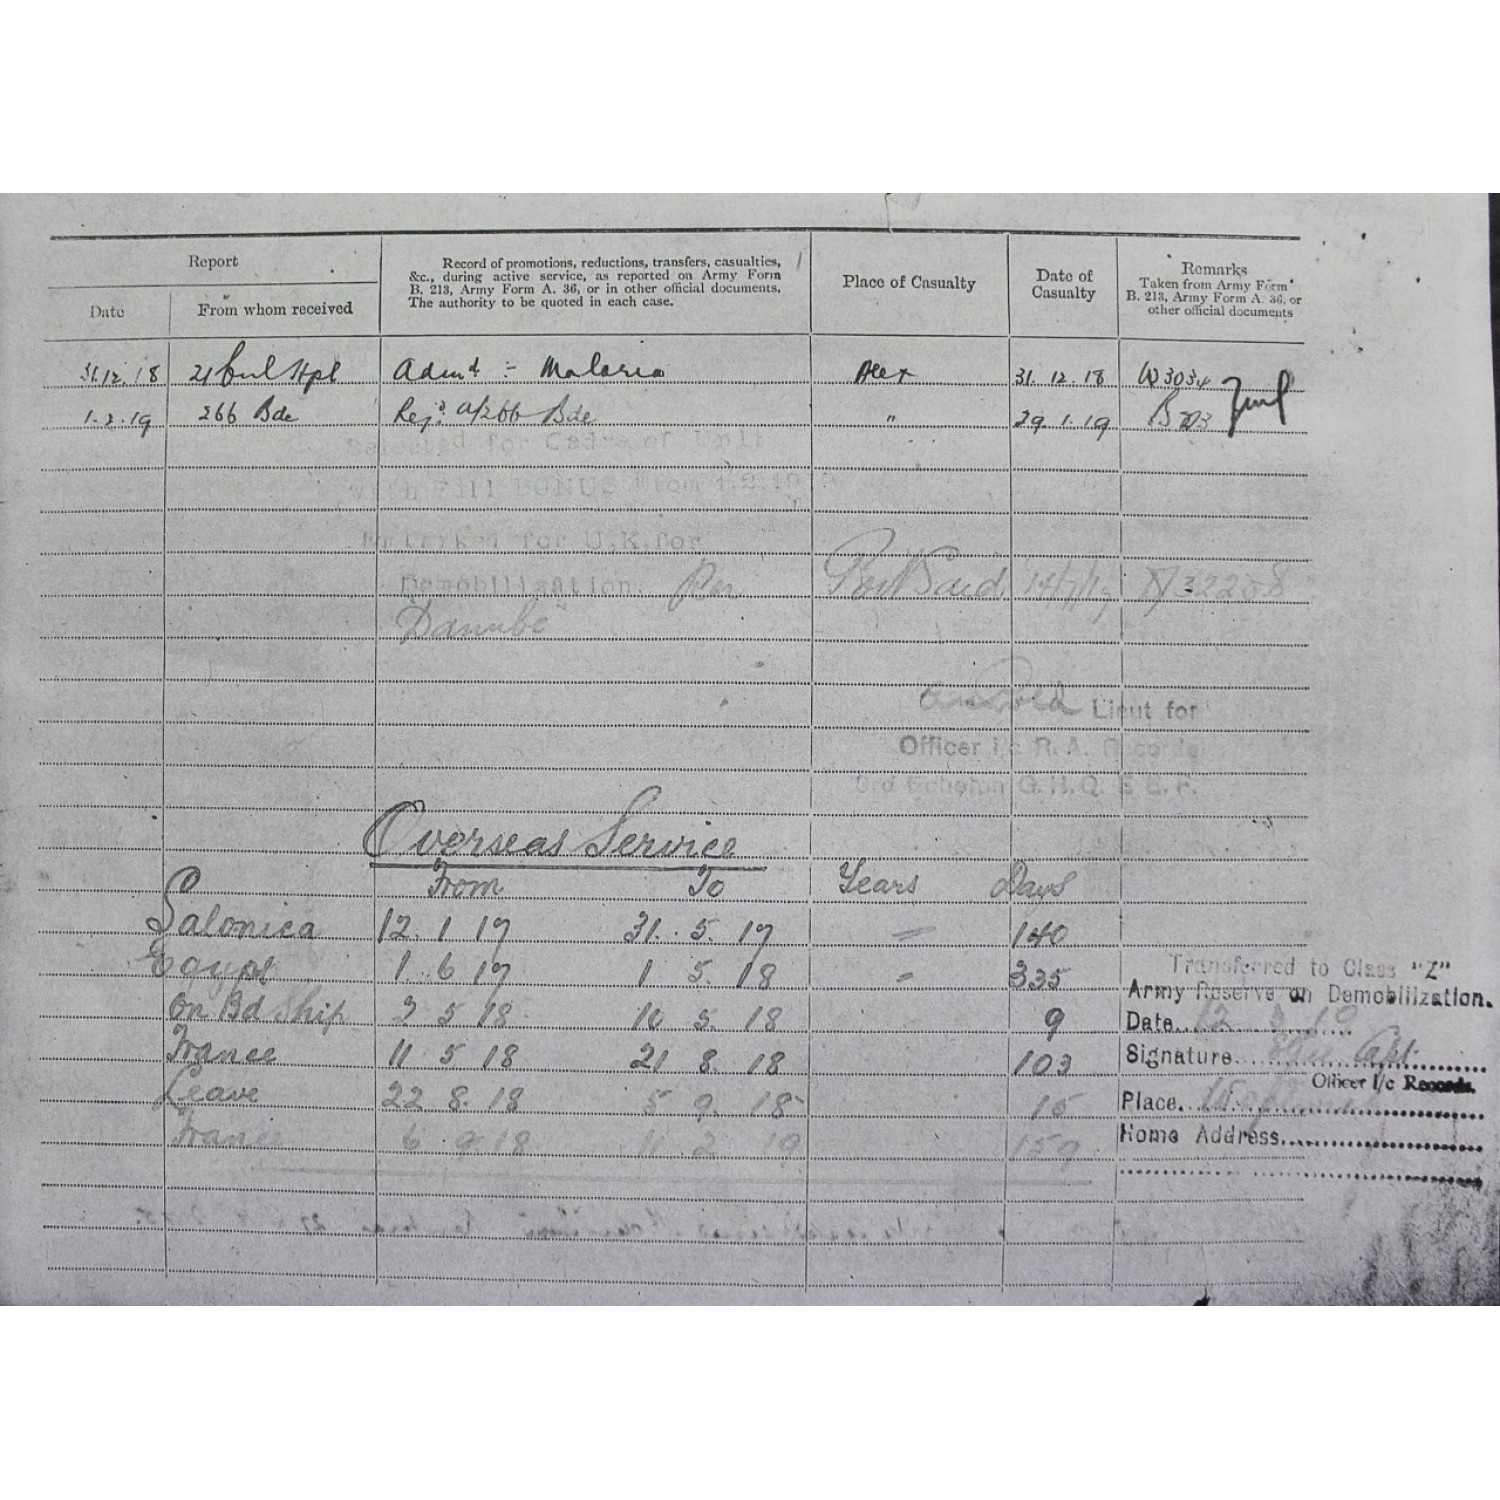 Report
Date
From whom received
Record of promotions, reductions, transfers, casualties,
&c., during active service, as reported on Army Form
B. 213, Army Form A. 36, or in other official documents.
The authority to be quoted in each case.
Place of Casualty
Date of
Casualty
Remarks
Taken from Army Form
B. 213, Army Form A. 36, or
other official documents
31.12.18 21 Hpl Admd :- Malaria Alex 31.12.18 W3034
1.2.19 266 Bde Rej: A/266 Bde " 29.1.19 B213
for Cadre of Unit
From 1.2.19
Embarked for U.K. for
Demobilization. Per Port Said
Danube
Lieut for
Officer i/c R.A. Records
3rd Echelon G.H.Q. E.E.F.
Overseas Service
From To Years Days
Salonica 12.1.17 31.5.17 " 140
Egypt 1.6.17 1.5.18 " 335
On Bd Ship 2 5 18 10 5 18 9
France 11 5 18 21 8 18 103
Leave 22 8 18 5 9 18 15
France 6 9 18 11 2 19 159
Transferred to Class "Z"
Army Reserve on Demobilization.
Date 12
Signature
Officer I/c Records.
Place
Home Address